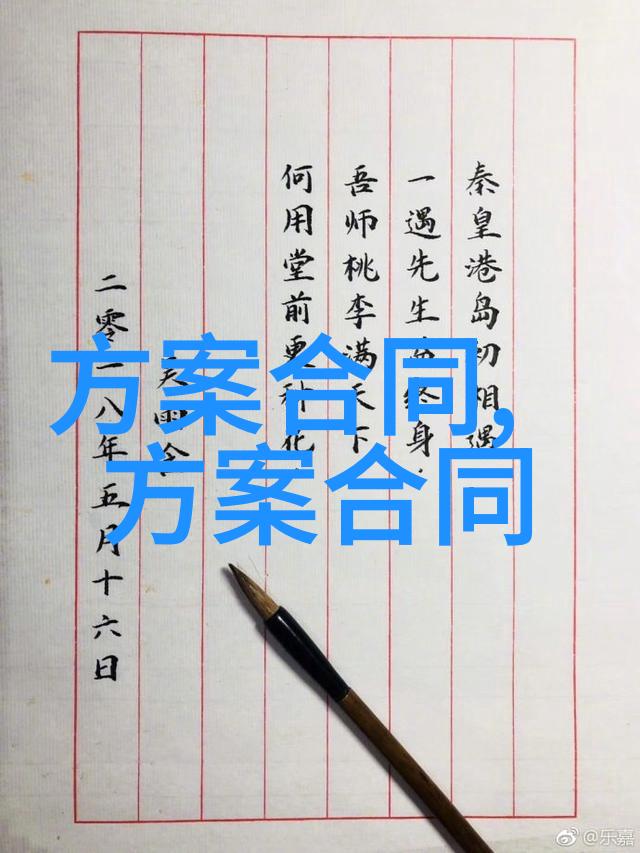 秦皇港岛初相遇
一遇先生终身.
吾师桃李满天下
何用堂前更种花.
二零一八年五月十六日
方案合同,
方案合同
@乐嘉